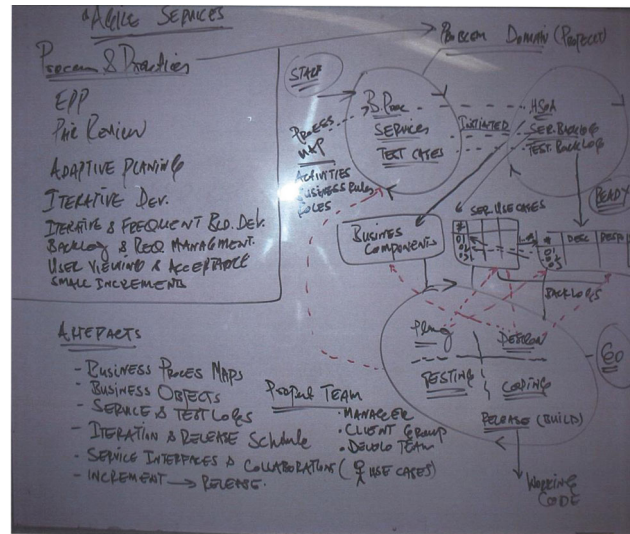 "AGILE SERVICES
Process & Practices
EPP
ADAPTIVE PLANING
ITERATIVE DEV.
ITERATIVE & FREQUENT BLD. DEV.
BACKLOG & REQ MANAGEMENT.
USER VIEWING & ACCEPTABLE
SMALL INCREMENTS
ARTEFACTS
- BUSINESS PROCES MAPS
- BUSINESS OBJECTS
- SERVICE & TEST LOGS
- ITERATION & RELEASE SCHEDULE
- SERVICE INTERFACES & COLLABORATION (USE CASES)
- INCREMENT → RELEASE.
PROJECT TEAM
· MANAGER
· CLIENT GROUP
· DEVELO TEAM
PROBLEM DOMAIN (PROJECT)
START
B.Proc
SERVICES
TEST CASES
PROCESS
MAP
ACTIVITIES
BUSINESS RULES
ROLES
SER.BACKLOG
TEST.BACKLOG
READY
BUSINES
COMPONENTS
SER. USE CASES
# DESC
01
02
03
BACKLOGS
DESIGN
TESTING
CODING
RELEASE (BUILD)
GO
WORKING
CODE